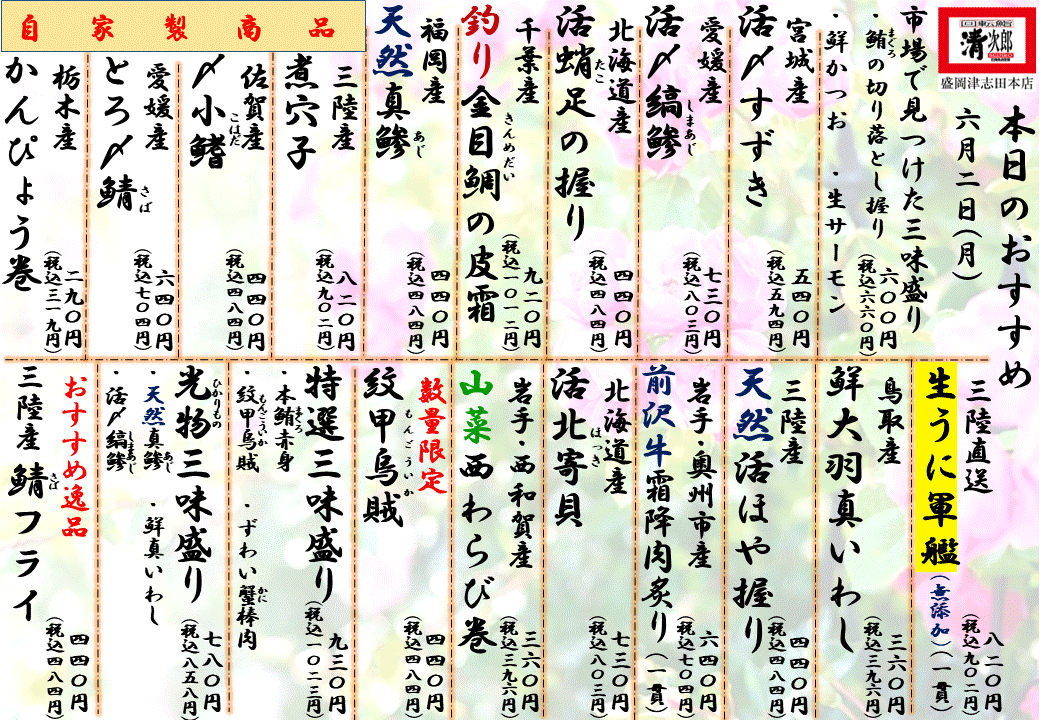 回転鮨
清次郎
盛岡津志田本店
本日のおすすめ
六月二日(月)
市場で見つけた三味盛り
・鮪の切り落とし握り
まぐろ
・鮮かつお ・生サーモン
六〇〇円
(税込六六〇円)
宮城産
活〆すずき
五四〇円
(税込五九四円)
愛媛産
活〆縞鯵
しまあじ
七三〇円
(税込八〇三円)
北海道産
活蛸足の握り
たこ
四四〇円
(税込四八四円)
千葉産
釣り金目鯛の皮霜
きんめだい
九二〇円
(税込一〇一二円)
福岡産
天然真鯵
あじ
四四〇円
(税込四八四円)
自家製商品
三陸産
煮穴子
八二〇円
(税込九〇二円)
佐賀産
〆小鰭
こはだ
四四〇円
(税込四八四円)
愛媛産
とろ〆鯖
さば
六四〇円
(税込七〇四円)
栃木産
かんぴょう巻
二九〇円
(税込三一九円)
三陸直送
生うに軍艦(無添加)(一貫)
八二〇円
(税込九〇二円)
鳥取産
鮮大羽真いわし
三六〇円
(税込三九六円)
三陸産
天然活ほや握り
四四〇円
(税込四八四円)
岩手・奥州市産
前沢牛霜降肉炙り(一貫)
六四〇円
(税込七〇四円)
北海道産
活北寄貝
ほっき
七三〇円
(税込八〇三円)
岩手・西和賀産
山菜西わらび巻
三六〇円
(税込三九六円)
数量限定
紋甲烏賊
もんごういか
四四〇円
(税込四八四円)
特選三味盛り
・本鮪赤身
まぐろ
・紋甲烏賊 ・ずわい蟹棒肉
もんごういか
かに
九三〇円
(税込一〇二三円)
光物三味盛り
ひかりもの
・天然真鯵 ・鮮真いわし
あじ
・活〆縞鯵
しまあじ
七八〇円
(税込八五八円)
おすすめ逸品
三陸産 鯖フライ
さば
四四〇円
(税込四八四円)